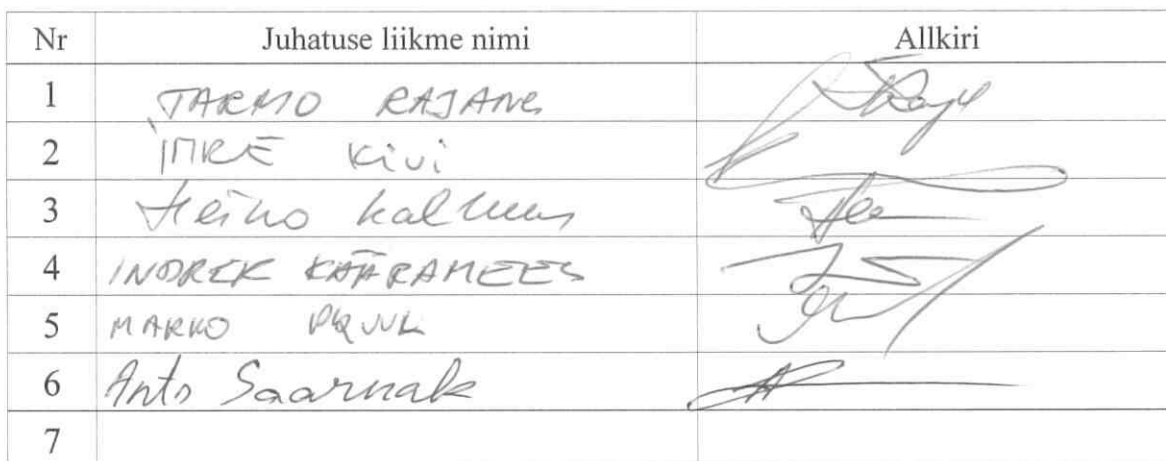 Nr Juhatuse liikme nimi Allkiri
1 TARMO RAJANG
2 IMRE Kivi
3 Heiko Kalmus
4 INDREK KÄÄRAMEES
5 MARKO
6 Ants Saarnak
7